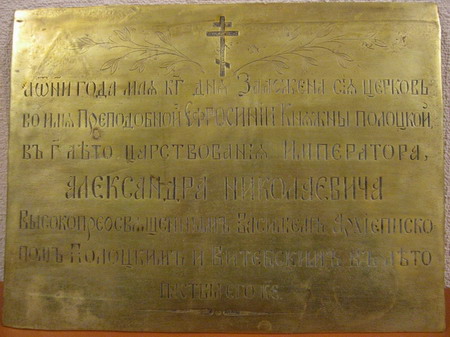 года мая кг дня Заложена сія церковь
во имя Преподобной Єуфросиніи Княжны полоцкой,
въ г лѣто царствованія Императора,
Александра Николаевича
Высокопреосвященнымъ Василіемъ Архіеписко
помъ Полоцкимъ и Витебскимъ въ лѣто